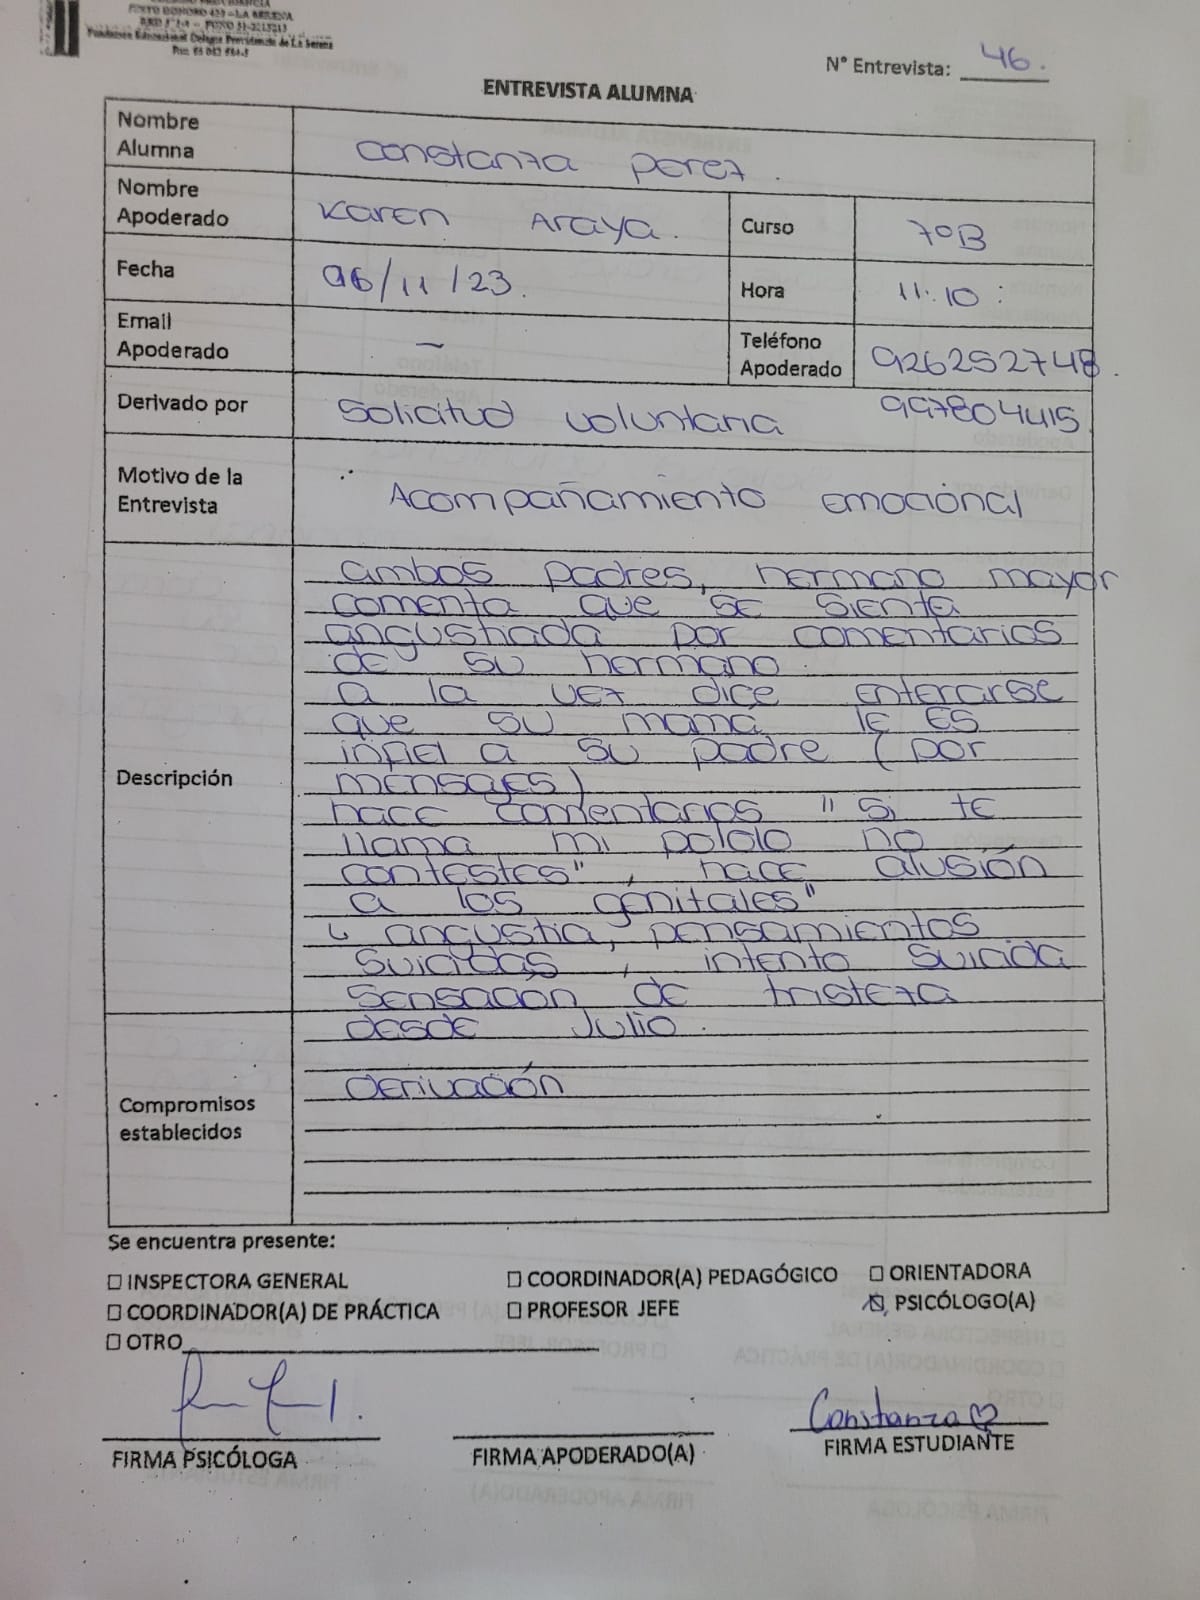 PINTO DONOSO 433 - LA SERENA
Fundación Educacional Colegio Providencia de La Serena
N° Entrevista: 46.
ENTREVISTA ALUMNA
Nombre Alumna constanza perez.
Nombre Apoderado Karen Araya.
Curso 7°B
Fecha 06/11/23.
Hora 11:10:
Email Apoderado –
Teléfono Apoderado 926252748.
997804415.
Derivado por Solicitud voluntaria
Motivo de la Entrevista Acompañamiento emocional
Descripción
ambos padres, hermano mayor
comenta que se sienta
angustiada por comentarios
de su hermano.
a la vez dice enterarse
que su mamá le es
infiel a su padre (por
mensajes)
hace comentarios "si te
llama mi pololo no
contestes", hace alusión
a los genitales"
↳ angustia, pensamientos
suicidas, intento suicida
sensación de tristeza
desde Julio.
Compromisos establecidos
derivación
Se encuentra presente:
☐ INSPECTORA GENERAL ☐ COORDINADOR(A) PEDAGÓGICO ☐ ORIENTADORA
☐ COORDINADOR(A) DE PRÁCTICA ☐ PROFESOR JEFE ☒ PSICÓLOGO(A)
☐ OTRO
Constanza♡
FIRMA PSICÓLOGA FIRMA APODERADO(A) FIRMA ESTUDIANTE